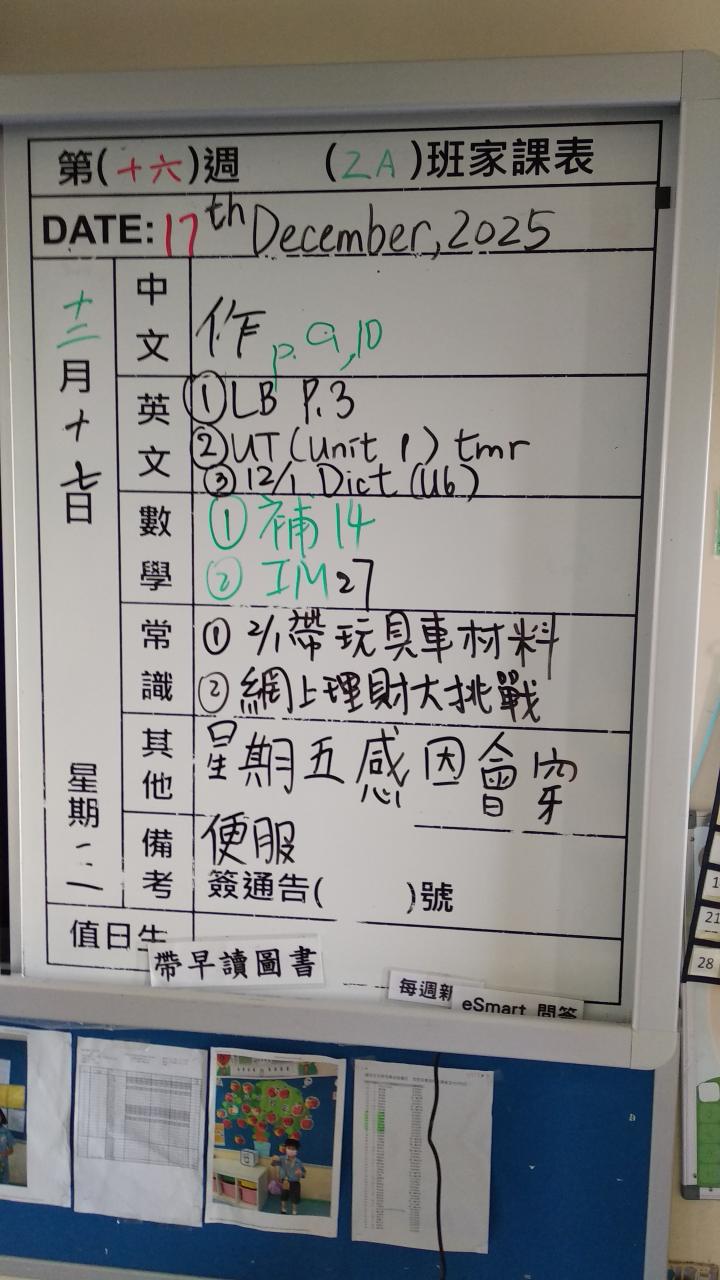 第(十六)週 (2A)班家課表
DATE: 17th December, 2025
十二月十七日
星期三
中文
作 p. 9,10
英文
① LB P.3
② UT (Unit 1) tmr
③ 12/1 Dict (U6)
數學
① 補14
② IM27
常識
① 2/1帶玩具車材料
② 網上理財大挑戰
其他
星期五感因會穿
便服
備考
簽通告( )號
值日生
帶早讀圖書
每週新
eSmart 問答
21
28